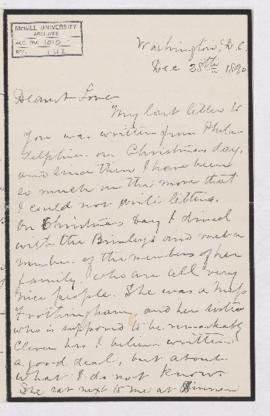 McGILL UNIVERSITY
ARCHIVES
ACC. NO. 1010
REF.
Washington, D.C.
Dec 28th 1890
Dearest Love
My last letter to
you was written from Phila-
delphia on Christmas day,
and since then I have been
so much on the move that
I could not write letters.
On Christmas day I dined
with the Brinleys and met a
number of the members of her
family, who are all very
nice people. She was a Miss
Frothingham, and her sister
who is supposed to be remarkably
clever has I believe written
a good deal, but about
what I do not know.
She sat next to me at dinner